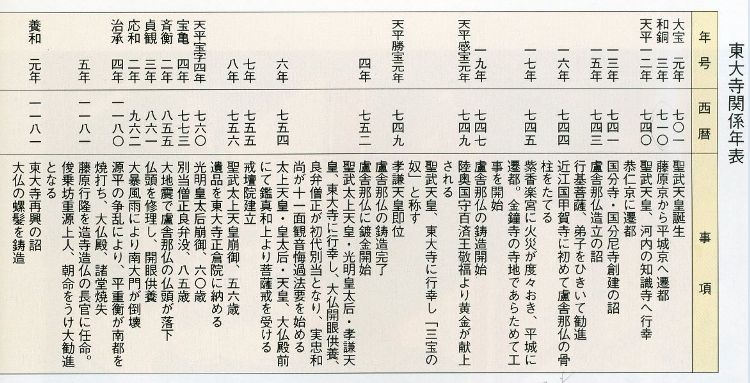 東大寺関係年表
年号 西暦 事項
大宝 元年 七〇一 聖武天皇誕生
和銅 三年 七一〇 藤原京から平城京へ遷都
天平一二年 七四〇 聖武天皇、河内の知識寺へ行幸
恭仁京に遷都
一三年 七四一 国分寺・国分尼寺創建の詔
一五年 七四三 盧舎那仏造立の詔
行基菩薩、弟子をひきいて勧進
一六年 七四四 近江国甲賀寺に初めて盧舎那仏の骨
柱をたてる
一七年 七四五 紫香楽宮に火災が度々おき、平城に
遷都。金鐘寺の寺地であらためて工
事を開始
一九年 七四七 盧舎那仏の鋳造開始
天平感宝元年 七四九 陸奥国守百済王敬福より黄金が献上
される
聖武天皇、東大寺に行幸し「三宝の
奴」と称す
天平勝宝元年 七四九 孝謙天皇即位
盧舎那仏の鋳造完了
四年 七五二 盧舎那仏に鍍金開始
聖武太上天皇・光明皇太后・孝謙天
皇、東大寺に行幸し、大仏開眼供養、
良弁僧正が初代別当となり、実忠和
尚が十一面観音悔過法要を始める
六年 七五四 太上天皇・皇太后・天皇、大仏殿前
にて鑑真和上より菩薩戒を受ける
七年 七五五 戒壇院建立
八年 七五六 聖武太上天皇崩御、五六歳
遺品を東大寺正倉院に納める
天平宝字四年 七六〇 光明皇太后崩御、六〇歳
宝亀 四年 七七三 別当僧正良弁没、八五歳
斉衡 二年 八五五 大地震で盧舎那仏の仏頭が落下
貞観 三年 八六一 仏頭を修理し、開眼供養
応和 二年 九六二 大暴風雨により南大門が倒壊
治承 四年 一一八〇 源平の争乱により、平重衡が南都を
焼打ち、大仏殿、諸堂焼失
五年 一一八一 藤原行隆を造寺造仏の長官に任命。
俊乗坊重源上人、朝命をうけ大勧進
となる
養和 元年 一一八一 東大寺再興の詔
大仏の螺髪を鋳造